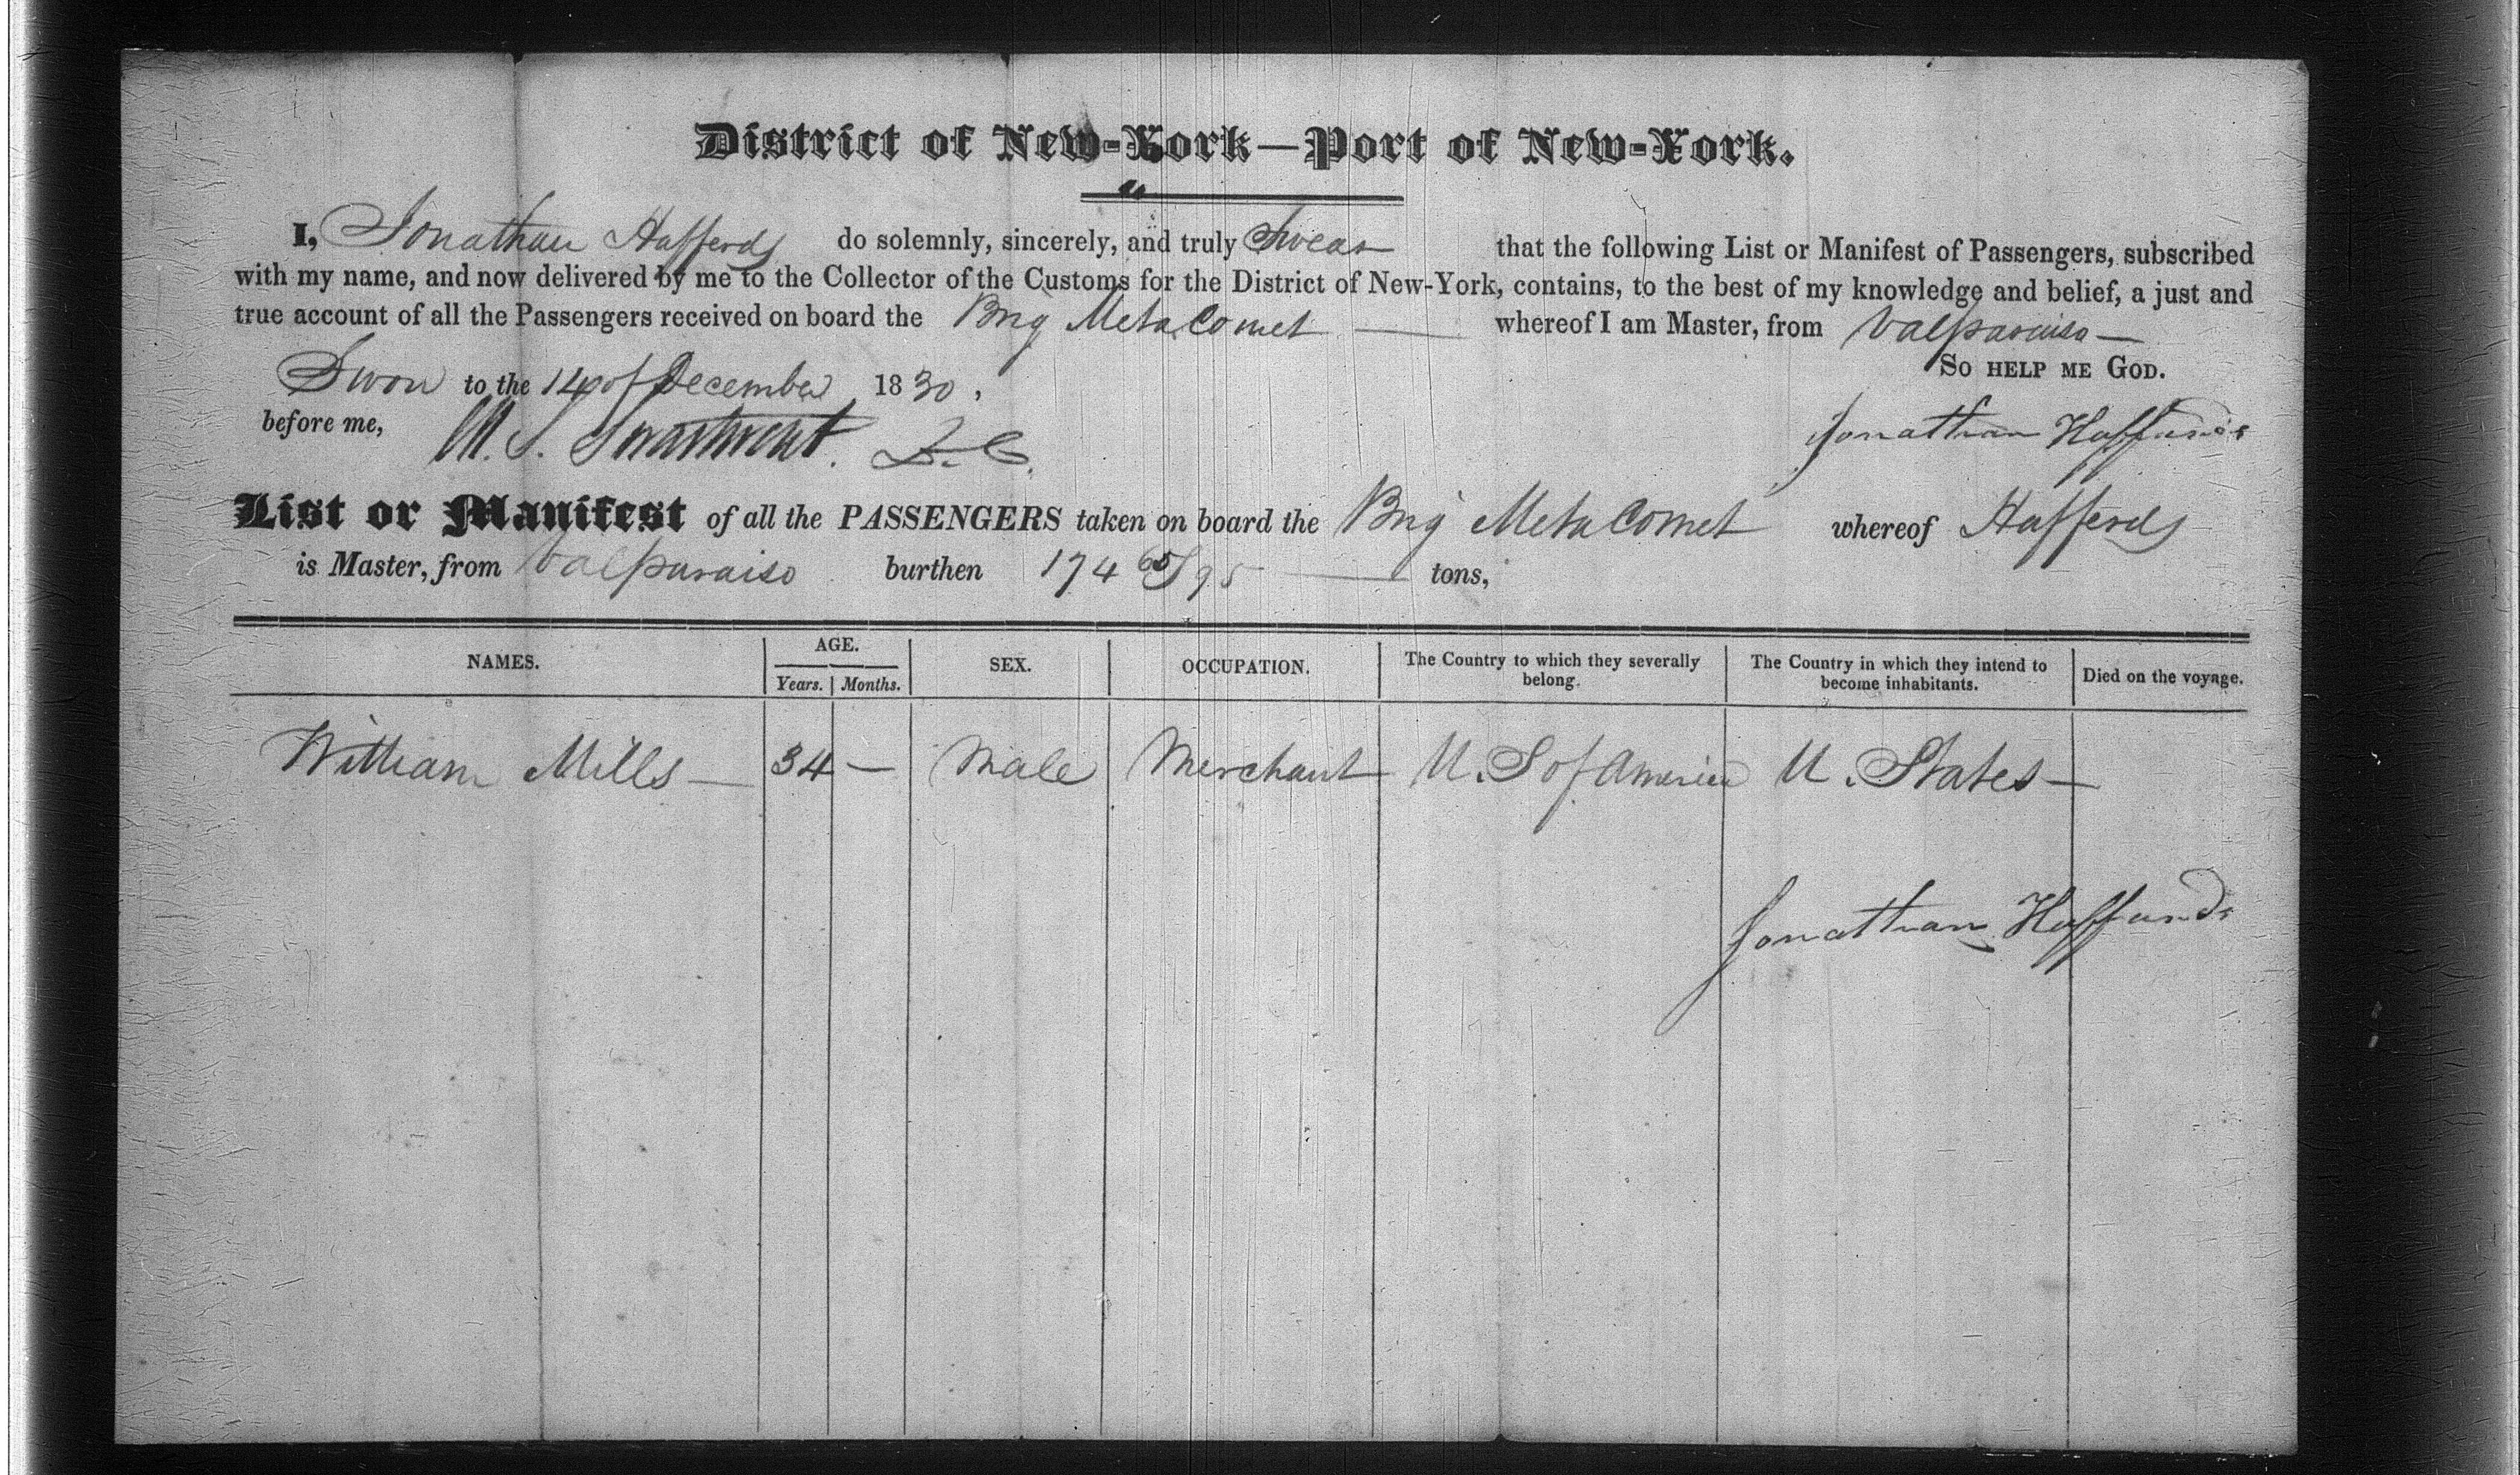 District of New-York—Port of New-York.
I, Jonathan Hafferds do solemnly, sincerely, and truly Swear that the following List or Manifest of Passengers, subscribed
with my name, and now delivered by me to the Collector of the Customs for the District of New-York, contains, to the best of my knowledge and belief, a just and
true account of all the Passengers received on board the Brig Metacomet — whereof I am Master, from Valparaiso —
So help me God.
Swon to the 14 of December 1830.
before me, M. S. Swartwout. D.C.
Jonathan Haffards
List or Manifest of all the PASSENGERS taken on board the Brig Metacomet whereof Hafferds
is Master, from Valparaiso burthen 174 65/95 — tons,
NAMES. AGE. SEX. OCCUPATION. The Country to which they severally belong. The Country in which they intend to become inhabitants. Died on the voyage.
Years. Months.
William Mills — 34 — Male Merchant U. S of America U. States —
Jonathan Haffards